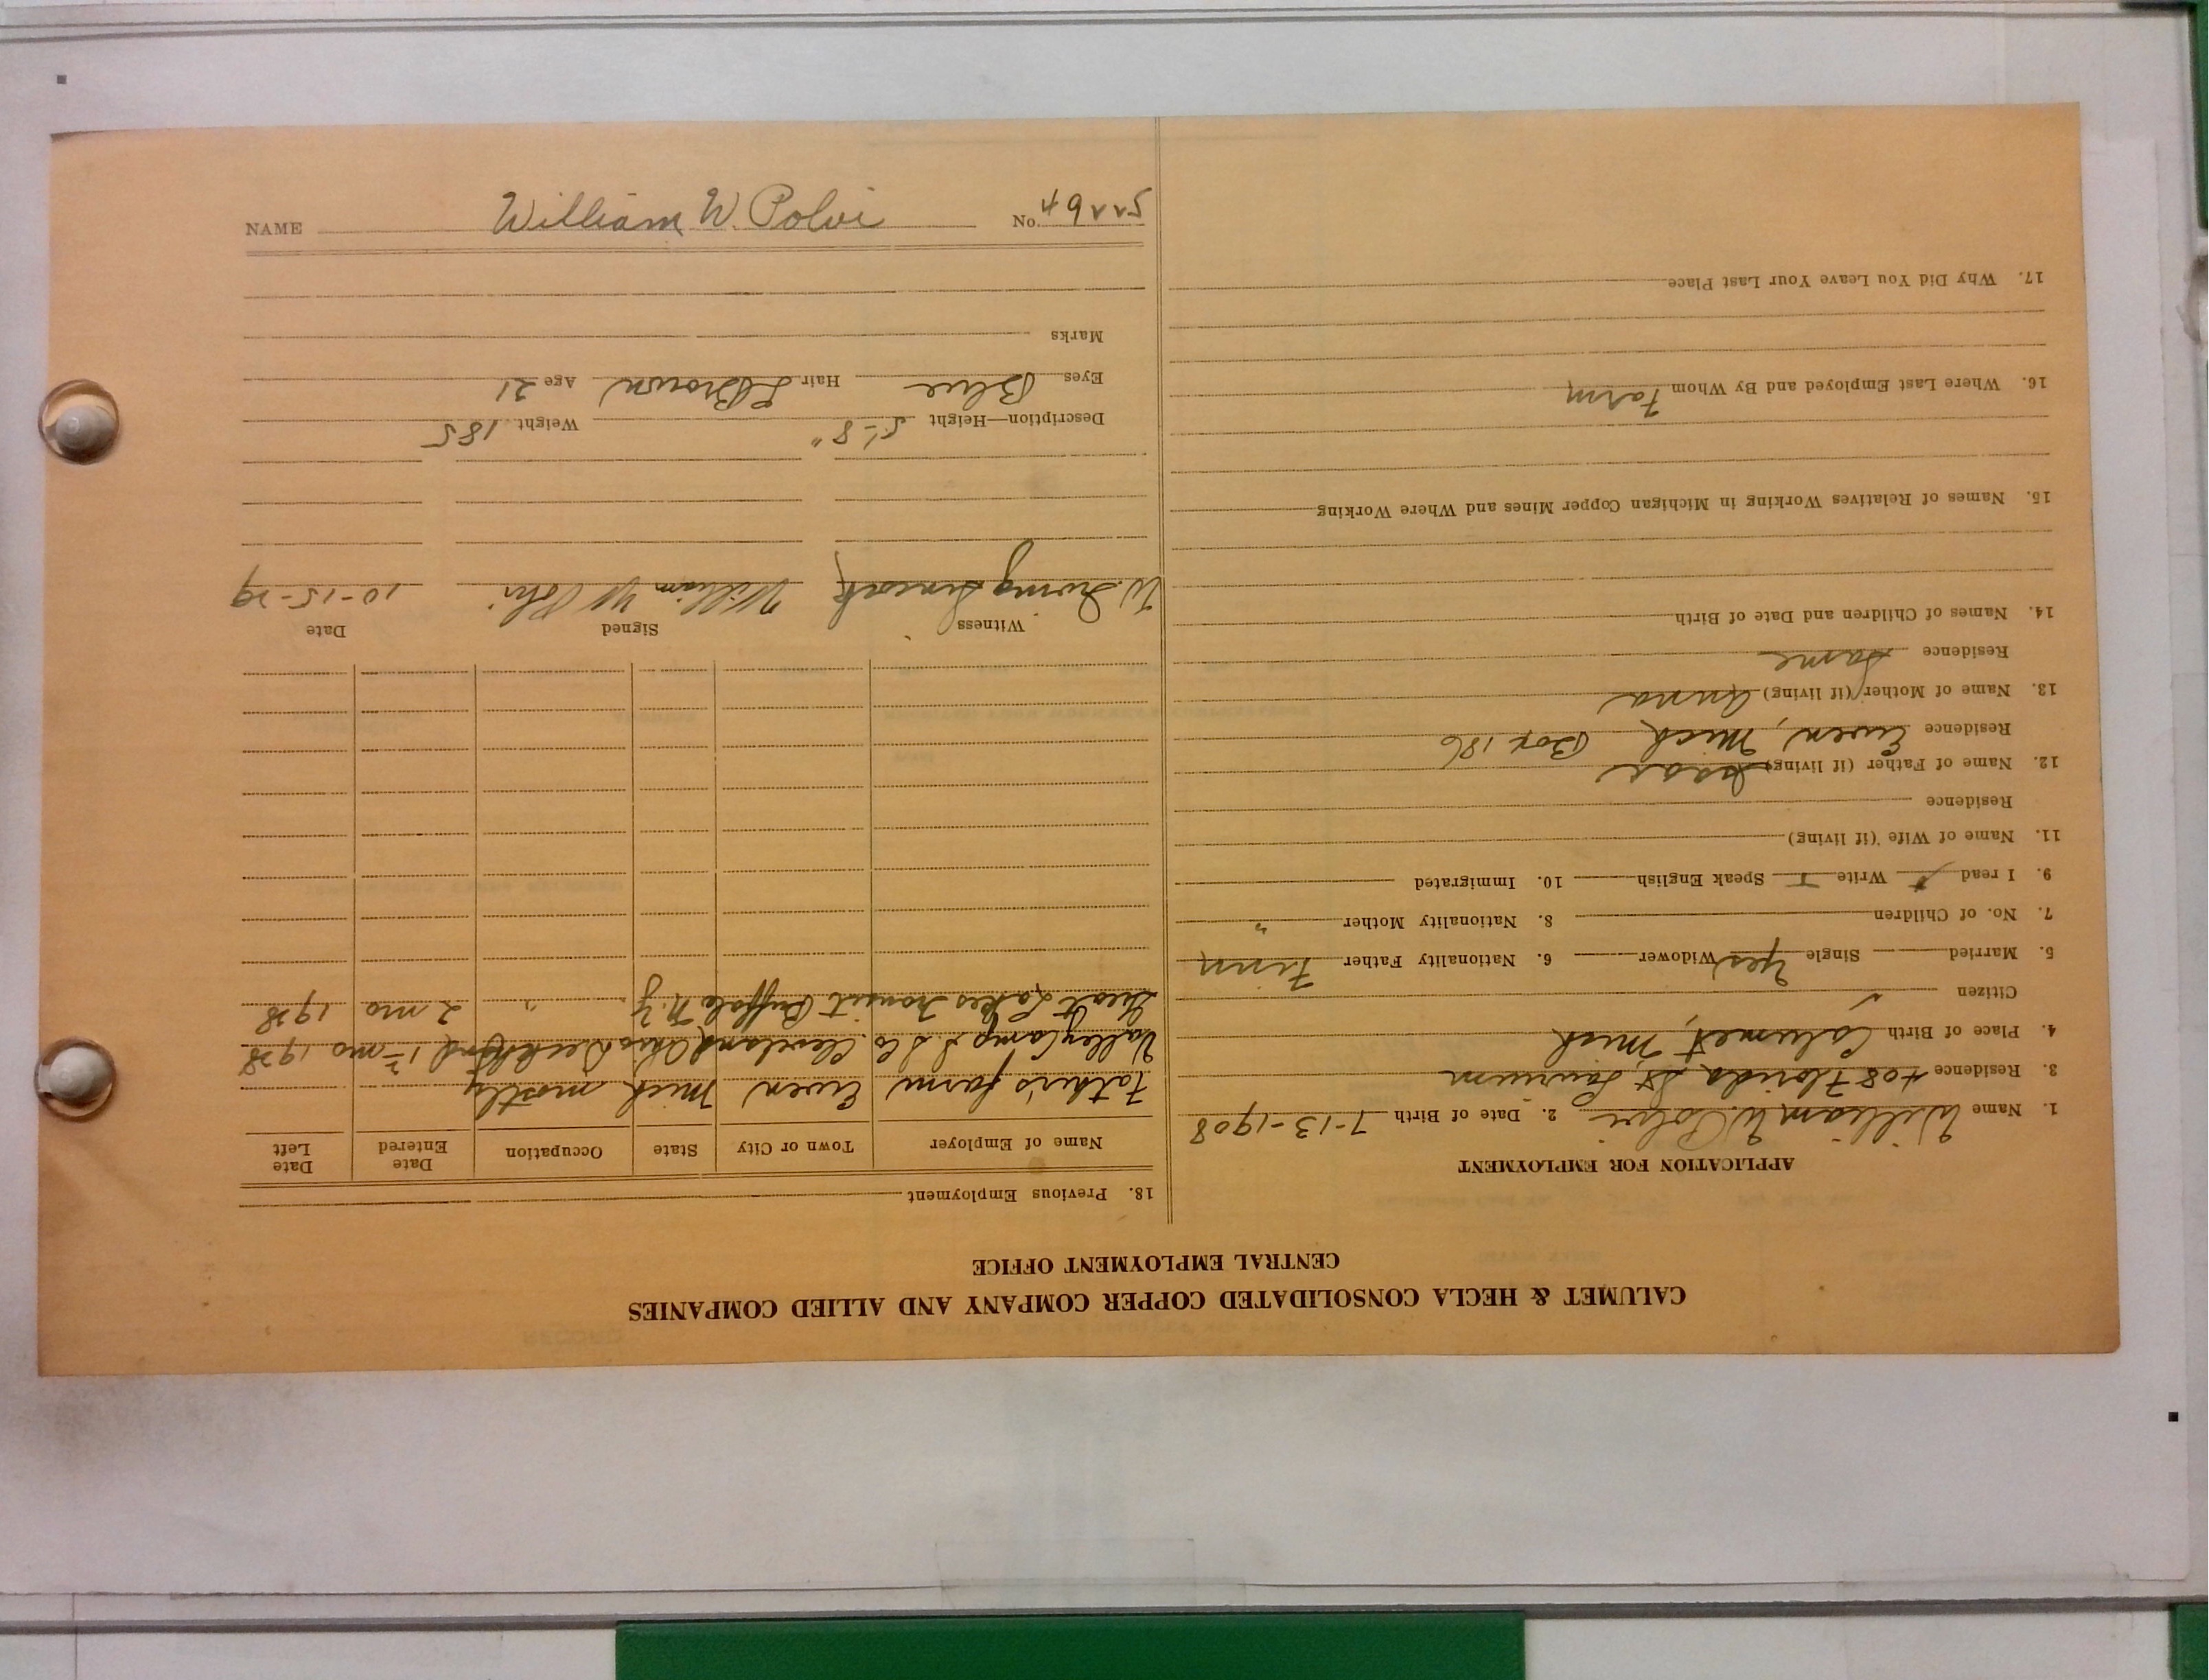 CALUMET & HECLA CONSOLIDATED COPPER COMPANY AND ALLIED COMPANIES
CENTRAL EMPLOYMENT OFFICE
APPLICATION FOR EMPLOYMENT
1. Name William W. Polvi 2. Date of Birth 7-13-1908
3. Residence 408 Florida St Laurium
4. Place of Birth Calumet, Mich
Citizen ✓
5. Married Single Yes Widower 6. Nationality Father Finn
7. No. of Children 8. Nationality Mother "
9. I read Write Speak English 10. Immigrated
11. Name of Wife (if living)
Residence
12. Name of Father (if living) Isaac
Residence Ewen, Mich Box 186
13. Name of Mother (if living) Anna
Residence Same
14. Names of Children and Date of Birth
15. Names of Relatives Working in Michigan Copper Mines and Where Working
16. Where Last Employed and By Whom Farm
17. Why Did You Leave Your Last Place
18. Previous Employment
Name of Employer Town or City State Occupation Date Entered Date Left
Father's farm Ewen Mich mostly
Valley Camp S S Co. Cleveland Ohio Deckhand mo 1928
Great Lakes Transit Buffalo N.Y. " 2 mo 1928
Witness Signed Date
W. Irving William W Polvi 10-15-29
Description—Height 5'-8" Weight 185
Eyes Blue Hair L Brown Age 21
Marks
NAME William W. Polvi No.